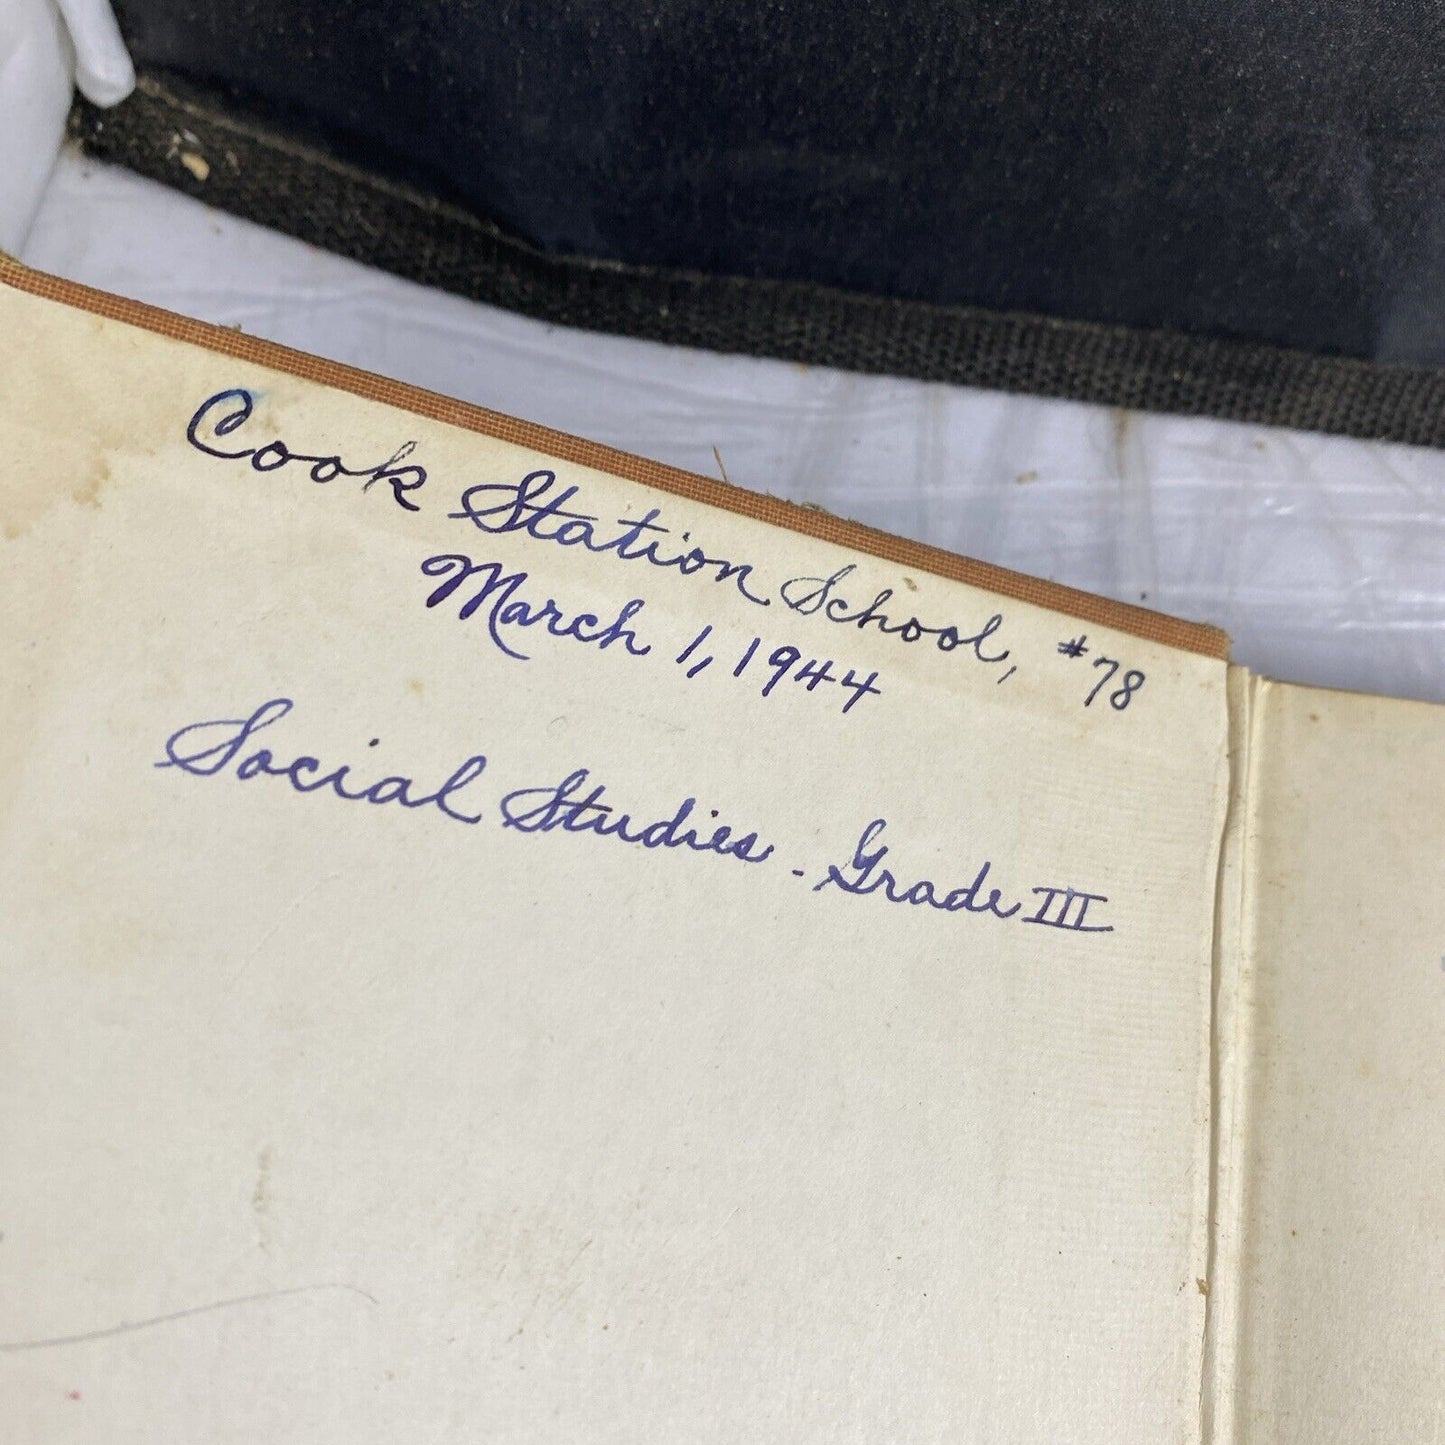 Cook Station School, #78
March 1, 1944
Social Studies - Grade III